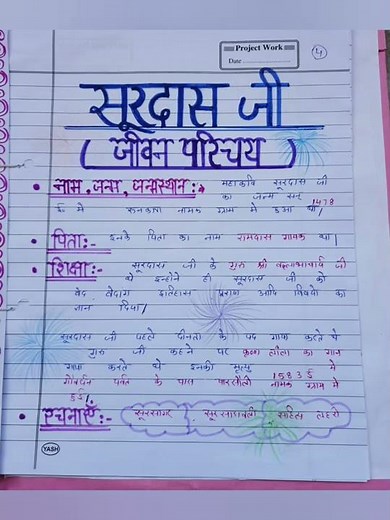 Project Work
Date
4
सूरदास जी
( जीवन परिचय )
• नाम, जन्म, जन्मस्थान :→ महाकवि सूरदास जी
का जन्म सन् 1478
ई में रुनकता नामक ग्राम में हुआ था।
• पिता:- इनके पिता का नाम रामदास गायक था।
• शिक्षा:- सूरदास जी के गुरु श्री वल्लभाचार्य जी
थे इन्होंने ही सूरदास जी को
वेद वेदांग इतिहास पुराण आदि विषयों का
ज्ञान दिया।
सूरदास जी पहले दीनता के पद गाया करते थे
गुरु जी कहने पर कृष्ण लीला का गान
गाया करते थे इनकी मृत्यु 1583 ई में
गोवर्धन पर्वत के पास पारसौली नामक ग्राम में
हुई।
• रचनाएँ:- सूरसागर, सूरसारावली, साहित्य लहरी
YASH